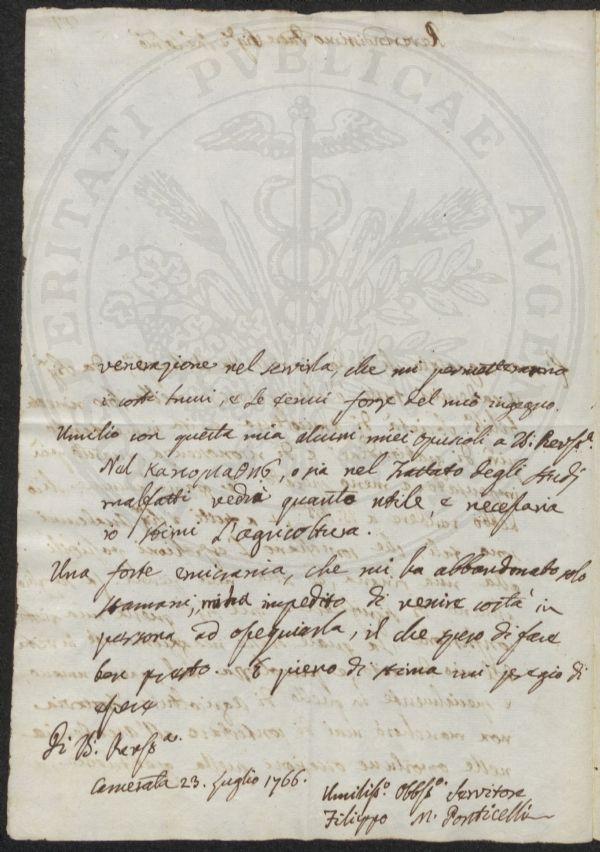 PERITATI PVBLICAE AVGE
Reverendissimo
venerazione nel servirla, che mi permetteranno
i corti lumi, e le tenui forze del mio ingegno.
Umilio con questa mia alcuni miei opuscoli a V. Revss.ª
Nel κακομαθης, o sia nel Trattato degli studj
malfatti vedrà quanto utile, e necessaria
io stimi l'agricoltura.
Una forte emicrania, che mi ha abbandonato solo
stamani, mi ha impedito di venire costà in
persona ad ossequiarla, il che spero di fare
ben presto. E pieno di stima mi pregio di
essere
Di V. Revss.ª
Camerata 23. Luglio 1766.
Umiliss.º Obblss.º Servitore
Filippo M. Ponticelli